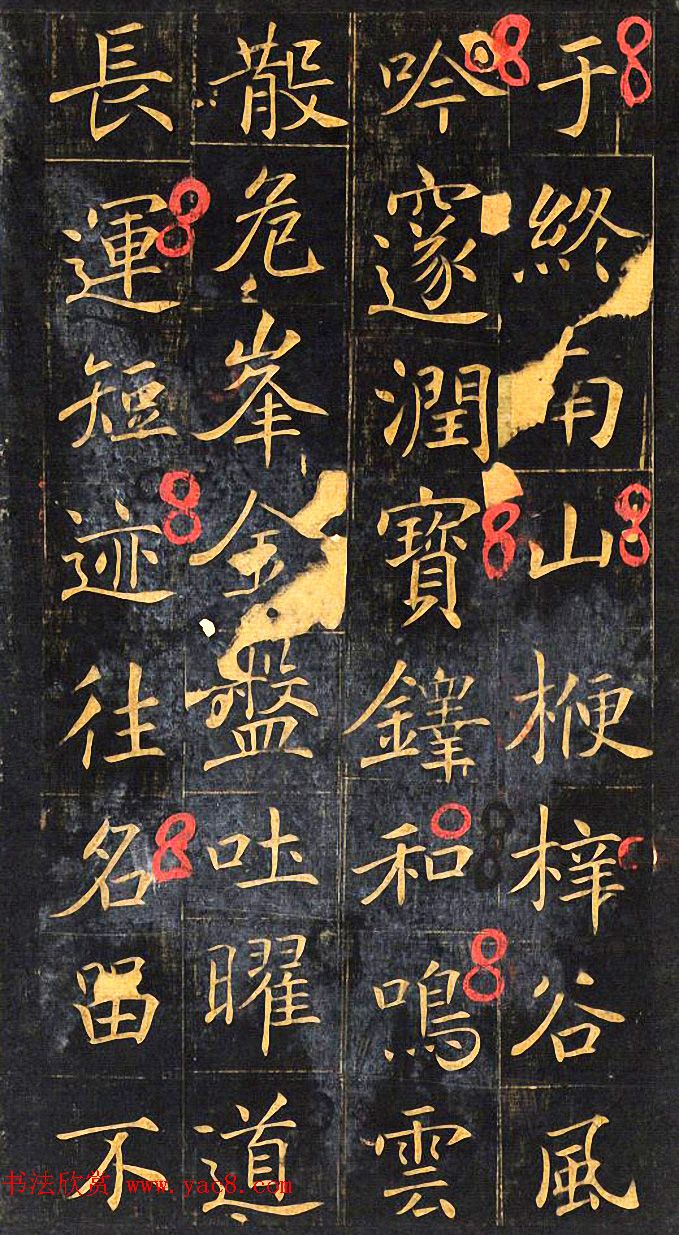 于終南山楩梓谷風
吟邃澗寶鐸和鳴雲
散危峯金盤吐曜道
長運短迹往名留不
书法欣赏 www.yac8.com